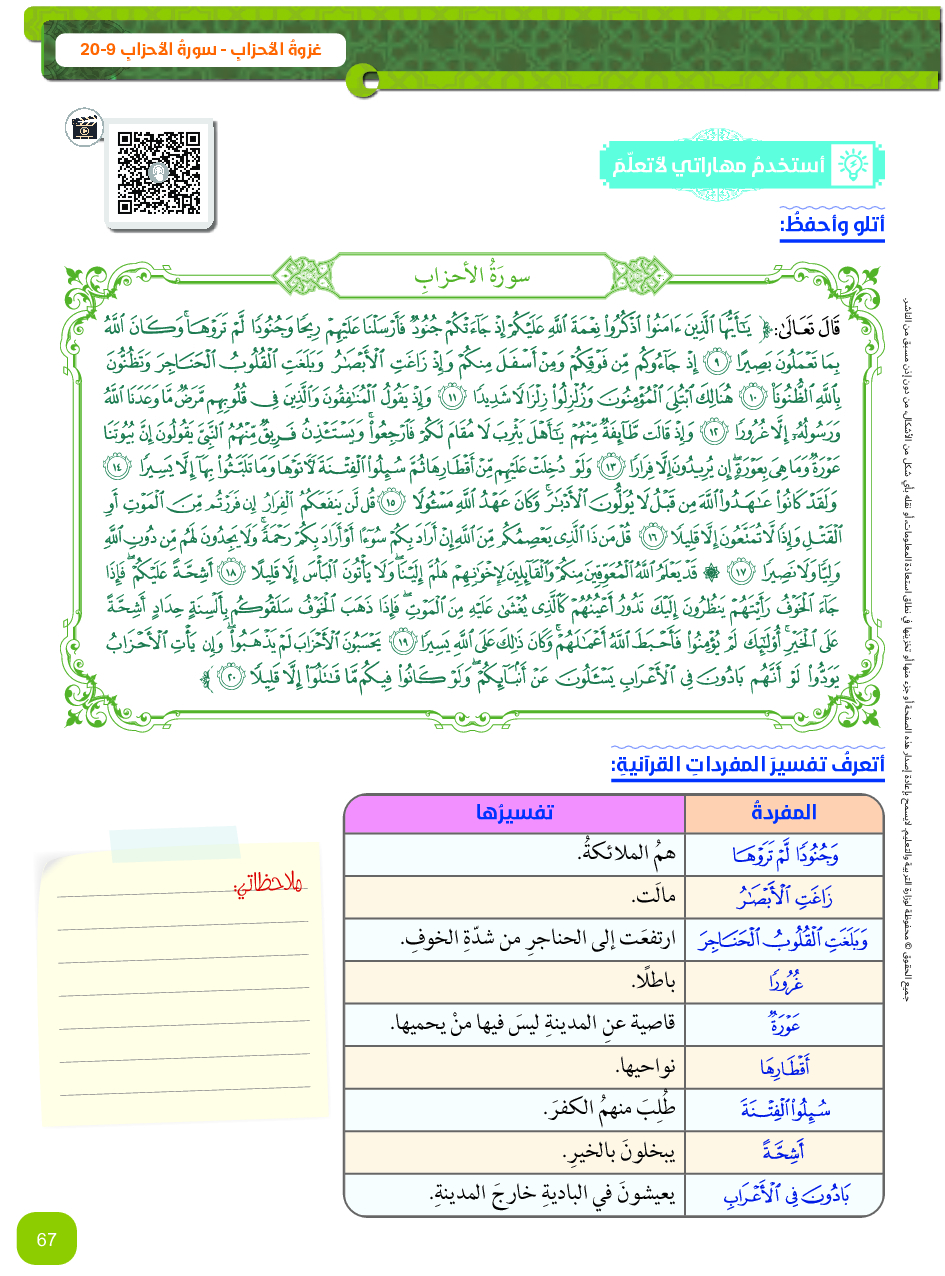 غزوةُ الأحزابِ - سورةُ الأحزابِ 9-20
أستخدمُ مهاراتي لأتعلّمَ
أتلو وأحفظُ:
سورَةُ الأحزابِ
قَالَ تَعَالَىٰ: ﴿ يَٰٓأَيُّهَا ٱلَّذِينَ ءَامَنُوا۟ ٱذْكُرُوا۟ نِعْمَةَ ٱللَّهِ عَلَيْكُمْ إِذْ جَآءَتْكُمْ جُنُودٌ فَأَرْسَلْنَا عَلَيْهِمْ رِيحًا وَجُنُودًا لَّمْ تَرَوْهَا ۚ وَكَانَ ٱللَّهُ
بِمَا تَعْمَلُونَ بَصِيرًا ٩ إِذْ جَآءُوكُم مِّن فَوْقِكُمْ وَمِنْ أَسْفَلَ مِنكُمْ وَإِذْ زَاغَتِ ٱلْأَبْصَٰرُ وَبَلَغَتِ ٱلْقُلُوبُ ٱلْحَنَاجِرَ وَتَظُنُّونَ
بِٱللَّهِ ٱلظُّنُونَا۠ ١٠ هُنَالِكَ ٱبْتُلِىَ ٱلْمُؤْمِنُونَ وَزُلْزِلُوا۟ زِلْزَالًا شَدِيدًا ١١ وَإِذْ يَقُولُ ٱلْمُنَٰفِقُونَ وَٱلَّذِينَ فِى قُلُوبِهِم مَّرَضٌ مَّا وَعَدَنَا ٱللَّهُ
وَرَسُولُهُۥٓ إِلَّا غُرُورًا ١٢ وَإِذْ قَالَت طَّآئِفَةٌ مِّنْهُمْ يَٰٓأَهْلَ يَثْرِبَ لَا مُقَامَ لَكُمْ فَٱرْجِعُوا۟ ۚ وَيَسْتَـْٔذِنُ فَرِيقٌ مِّنْهُمُ ٱلنَّبِىَّ يَقُولُونَ إِنَّ بُيُوتَنَا
عَوْرَةٌ وَمَا هِىَ بِعَوْرَةٍ ۖ إِن يُرِيدُونَ إِلَّا فِرَارًا ١٣ وَلَوْ دُخِلَتْ عَلَيْهِم مِّنْ أَقْطَارِهَا ثُمَّ سُئِلُوا۟ ٱلْفِتْنَةَ لَءَاتَوْهَا وَمَا تَلَبَّثُوا۟ بِهَآ إِلَّا يَسِيرًا ١٤
وَلَقَدْ كَانُوا۟ عَٰهَدُوا۟ ٱللَّهَ مِن قَبْلُ لَا يُوَلُّونَ ٱلْأَدْبَٰرَ ۚ وَكَانَ عَهْدُ ٱللَّهِ مَسْـُٔولًا ١٥ قُل لَّن يَنفَعَكُمُ ٱلْفِرَارُ إِن فَرَرْتُم مِّنَ ٱلْمَوْتِ أَوِ
ٱلْقَتْلِ وَإِذًا لَّا تُمَتَّعُونَ إِلَّا قَلِيلًا ١٦ قُلْ مَن ذَا ٱلَّذِى يَعْصِمُكُم مِّنَ ٱللَّهِ إِنْ أَرَادَ بِكُمْ سُوٓءًا أَوْ أَرَادَ بِكُمْ رَحْمَةً ۚ وَلَا يَجِدُونَ لَهُم مِّن دُونِ ٱللَّهِ
وَلِيًّا وَلَا نَصِيرًا ١٧ ۞ قَدْ يَعْلَمُ ٱللَّهُ ٱلْمُعَوِّقِينَ مِنكُمْ وَٱلْقَآئِلِينَ لِإِخْوَٰنِهِمْ هَلُمَّ إِلَيْنَا ۖ وَلَا يَأْتُونَ ٱلْبَأْسَ إِلَّا قَلِيلًا ١٨ أَشِحَّةً عَلَيْكُمْ ۖ فَإِذَا
جَآءَ ٱلْخَوْفُ رَأَيْتَهُمْ يَنظُرُونَ إِلَيْكَ تَدُورُ أَعْيُنُهُمْ كَٱلَّذِى يُغْشَىٰ عَلَيْهِ مِنَ ٱلْمَوْتِ ۖ فَإِذَا ذَهَبَ ٱلْخَوْفُ سَلَقُوكُم بِأَلْسِنَةٍ حِدَادٍ أَشِحَّةً
عَلَى ٱلْخَيْرِ ۚ أُو۟لَٰٓئِكَ لَمْ يُؤْمِنُوا۟ فَأَحْبَطَ ٱللَّهُ أَعْمَٰلَهُمْ ۚ وَكَانَ ذَٰلِكَ عَلَى ٱللَّهِ يَسِيرًا ١٩ يَحْسَبُونَ ٱلْأَحْزَابَ لَمْ يَذْهَبُوا۟ ۖ وَإِن يَأْتِ ٱلْأَحْزَابُ
يَوَدُّوا۟ لَوْ أَنَّهُم بَادُونَ فِى ٱلْأَعْرَابِ يَسْـَٔلُونَ عَنْ أَنۢبَآئِكُمْ ۖ وَلَوْ كَانُوا۟ فِيكُم مَّا قَٰتَلُوٓا۟ إِلَّا قَلِيلًا ٢٠ ﴾
أتعرفُ تفسيرَ المفرداتِ القرآنيةِ:
المفردةُ تفسيرُها
وَجُنُودًا لَّمْ تَرَوْهَا همُ الملائكةُ.
زَاغَتِ ٱلْأَبْصَٰرُ مالَت.
وَبَلَغَتِ ٱلْقُلُوبُ ٱلْحَنَاجِرَ ارتفعَت إلى الحناجرِ من شدّةِ الخوفِ.
غُرُورًا باطلًا.
عَوْرَةٌ قاصية عنِ المدينةِ ليسَ فيها منْ يحميها.
أَقْطَارِهَا نواحيها.
سُئِلُوا۟ ٱلْفِتْنَةَ طُلِبَ منهمُ الكفرَ.
أَشِحَّةً يبخلونَ بالخيرِ.
بَادُونَ فِى ٱلْأَعْرَابِ يعيشونَ في الباديةِ خارجَ المدينةِ.
ملاحظاتي:
جميع الحقوق © محفوظة لوزارة التربية والتعليم. لايسمح بإعادة إصدار هذه الصفحة أو جزء منها أو تخزينها في نطاق استعادة المعلومات، أو نقله بأي شكل من الأشكال، من دون إذن مسبق من الناشر.
67